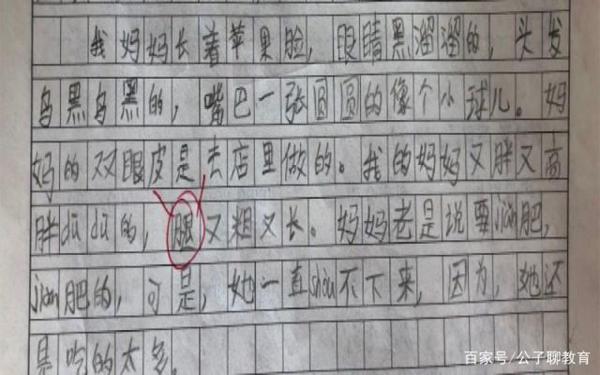 我妈妈长着苹果脸，眼睛黑溜溜的，头发
乌黑乌黑的，嘴巴一张圆圆的像个小球儿。妈
妈的双眼皮是去店里做的。我的妈妈又胖又高
胖dūdū的，腿又粗又长。妈妈老是说要jiǎn肥，
jiǎn肥的，可是，她一直shòu不下来，因为，她还
是吃的太多。
百家号/公子聊教育